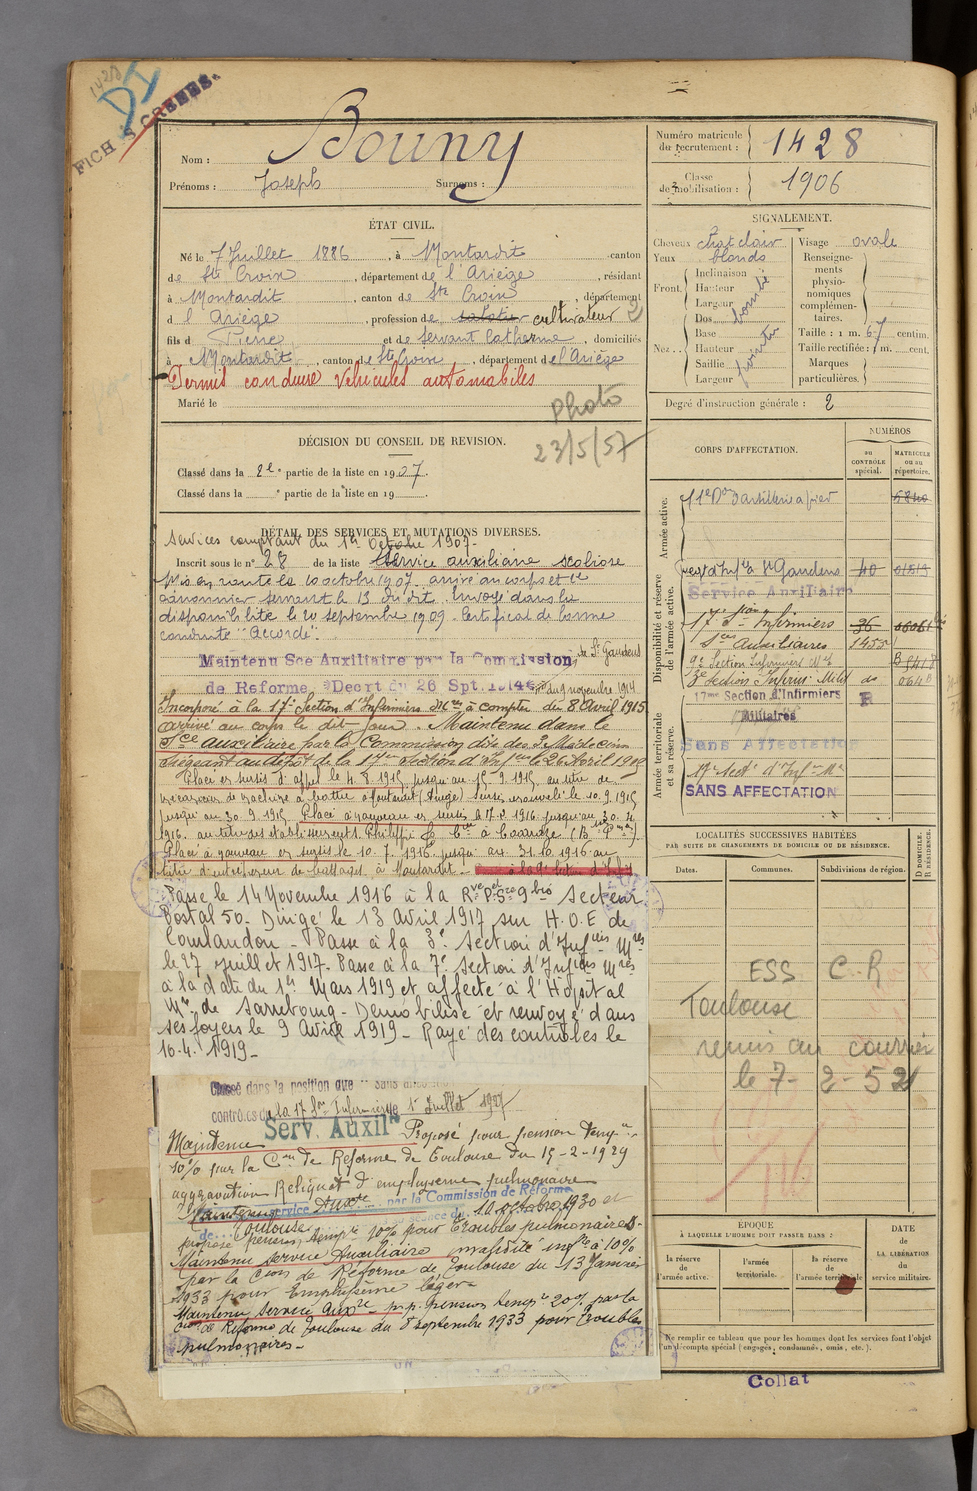 1428
DI
FICHES CREEES.
Nom : Bouny
Prénoms : Joseph Surnoms :
Numéro matricule du recrutement : 1428
Classe de mobilisation : 1906
ÉTAT CIVIL.
Né le 7 Juillet 1886, à Montardit canton
de Ste Croix, département de l'Ariège, résidant
à Montardit, canton de Ste Croix, département
d l'Ariège, profession de sabotier cultivateur 2
fils d Pierre et de Servant Catherine, domiciliés
à Montardit, canton de Ste Croix, département de l'Ariège
Permis conduire véhicules automobiles
Marié le
Photo
23/5/57
SIGNALEMENT.
Cheveux chat clair
Yeux blonds
Front. Inclinaison Hauteur Largeur bombé
Nez.. Dos Base Hauteur Saillie Largeur pointu
Visage ovale
Renseignements physionomiques complémentaires.
Taille : 1 m. 67 centim.
Taille rectifiée : 1 m. cent.
Marques particulières.
Degré d'instruction générale : 2
DÉCISION DU CONSEIL DE REVISION.
Classé dans la 2e partie de la liste en 1907.
Classé dans la partie de la liste en 19
DÉTAIL DES SERVICES ET MUTATIONS DIVERSES.
Services comptant du 1er Octobre 1907.
Inscrit sous le n° 28 de la liste Service auxiliaire scoliose
Mis en route le 10 octobre 1907 arrivé au corps et
canonnier servant le 13 du dit. Envoyé dans la
disponibilité le 20 septembre 1909. Certificat de bonne
conduite "Accordé".
de St Gaudens
Maintenu Sce Auxiliaire par la Commission
de Reforme Décret du 26 Spt. 1914 du 9 novembre 1914
Incorporé à la 17e Section d'Infirmiers Mres à compter du 8 Avril 1915
arrivé au corps le dit jour. Maintenu dans le
Sce auxiliaire par la Commission dite des 3 Médecins
siégeant au dépôt de la 17e Section d'Inf. le 26 Avril 1915
Placé en sursis d'appel le 4.8.1915 jusqu'au 15.9.1915 au titre de
machine à battre à Montardit (Ariège) Sursis renouvelé le 10.9.1915
jusqu'au 30.9.1915 Placé à nouveau en sursis le 17.2.1916 jusqu'au 30.4.
1916. au titre des établissements Philippe & Cie à
Placé à nouveau en sursis le 10.7.1916 jusqu'au 31.10.1916 au
titre d'entrepreneur de battages à Montardit -
Passé le 14 Novembre 1916 à la 9 Secteur
Postal 50. Dirigé le 13 Avril 1917 sur H.O.E de
Coulandon - Passé à la 3e Section d'Infiers Mres
le 27 Juillet 1917. Passé à la 7e Section d'Infiers Mres
à la date du 1er Mars 1919 et affecté à l'Hôpital
Mre de Sarrebourg - Démobilisé et renvoyé dans
ses foyers le 9 Avril 1919 - Rayé des contrôles le
16.4.1919 -
Classé dans la position dite "sans affectation"
contrôles de la 17 Son Infirmiers le 1er Juillet 1927
Maintenu Serv. Auxil Proposé pour pension Temp
10% par la Con de Réforme de Toulouse du 15-2-1929
aggravation Reliquat d'emphysème pulmonaire
Maintenu service Auxre par la Commission de Réforme
de Toulouse séance du 20 octobre 1930 et
proposé pension temp 10% pour Troubles pulmonaires -
Maintenu Service Auxiliaire invalidité infre à 10%
par la Con de Réforme de Toulouse du 13 Janvier
1933 pour Emphysème léger
Maintenu Service Auxre - prop. pension temp 20% par la
Con de Réforme de Toulouse du 8 septembre 1933 pour Troubles
pulmonaires -
CORPS D'AFFECTATION.
NUMÉROS
au CONTRÔLE spécial.
MATRICULE ou au répertoire.
Armée active.
11e Bon d'artillerie à pied
Disponibilité et réserve de l'armée active.
Regt d'Infie St Gaudens 40
Service Auxiliaire
17e Son Infirmiers 36
Sces Auxiliaires 1455
9e Section Infirmiers Mres B
3e Section Infirm. Milit de 064
Armée territoriale et sa réserve.
17me Section d'Infirmiers R
Militaires
Sans Affectation
17e Secton d'Inf. Mre
SANS AFFECTATION
LOCALITÉS SUCCESSIVES HABITÉES
PAR SUITE DE CHANGEMENTS DE DOMICILE OU DE RÉSIDENCE.
Dates. Communes. Subdivisions de région. D DOMICILE. R RÉSIDENCE.
ESS C-R
Toulouse
repris au courrier
le 7-2-52
ÉPOQUE
À LAQUELLE L'HOMME DOIT PASSER DANS :
la réserve de l'armée active.
l'armée territoriale.
la réserve de l'armée territoriale
DATE de LA LIBÉRATION du service militaire.
Ne remplir ce tableau que pour les hommes dont les services font l'objet
d'un décompte spécial (engagés, condamnés, omis, etc.).
Collat